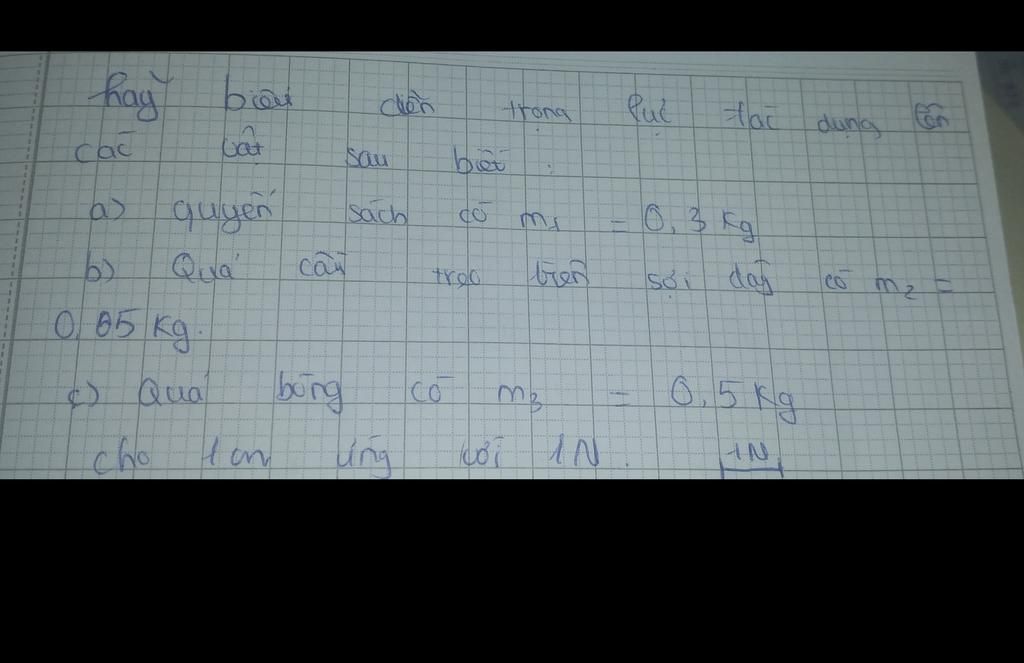 hãy biểu diễn trọng lực tác dụng lên
các vật sau biết :
a) quyển sách có m₁ = 0,3 kg
b) Quả cầu treo trên sợi dây có m₂ =
0,05 kg.
c) Quả bóng có m₃ = 0,5 kg
cho 1 cm ứng với 1N. 1N